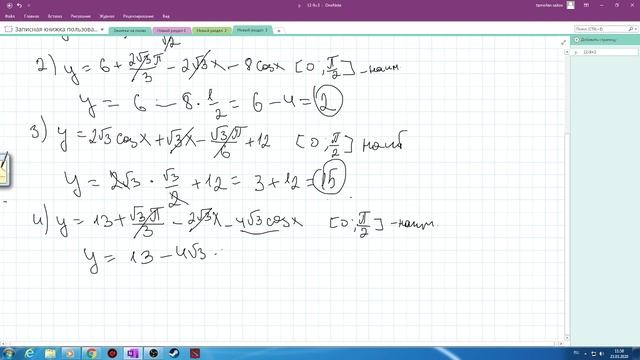 12-9л3 - OneNote
tamirlan salov
Главная
Рисование
Вид
Записная книжка пользова...
Заметки на полях
Новый раздел 1
Новый раздел 2
Новый раздел 3
Поиск (Ctrl+E)
Добавить страницу
√2
2) y = 6 + 2√3π/3 - 2√3x - 8cosx [0; π/2] - наим
y = 6 - 8 · 1/2 = 6 - 4 = 2
3) y = 2√3 cosx + √3x - √3π/6 + 12 [0; π/2] наиб
y = 2√3 · √3/2 + 12 = 3 + 12 = 15
4) y = 13 + √3π/3 - 2√3x - 4√3cosx [0; π/2] - наим
y = 13 - 4√3 ·
RU
11:38
21.01.2020